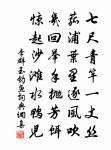 七尺青竿一丈丝
菰浦叶里逐风吹
几回举手抛芳饵
惊起沙滩水鸭儿
李群玉钓鱼词典调喜